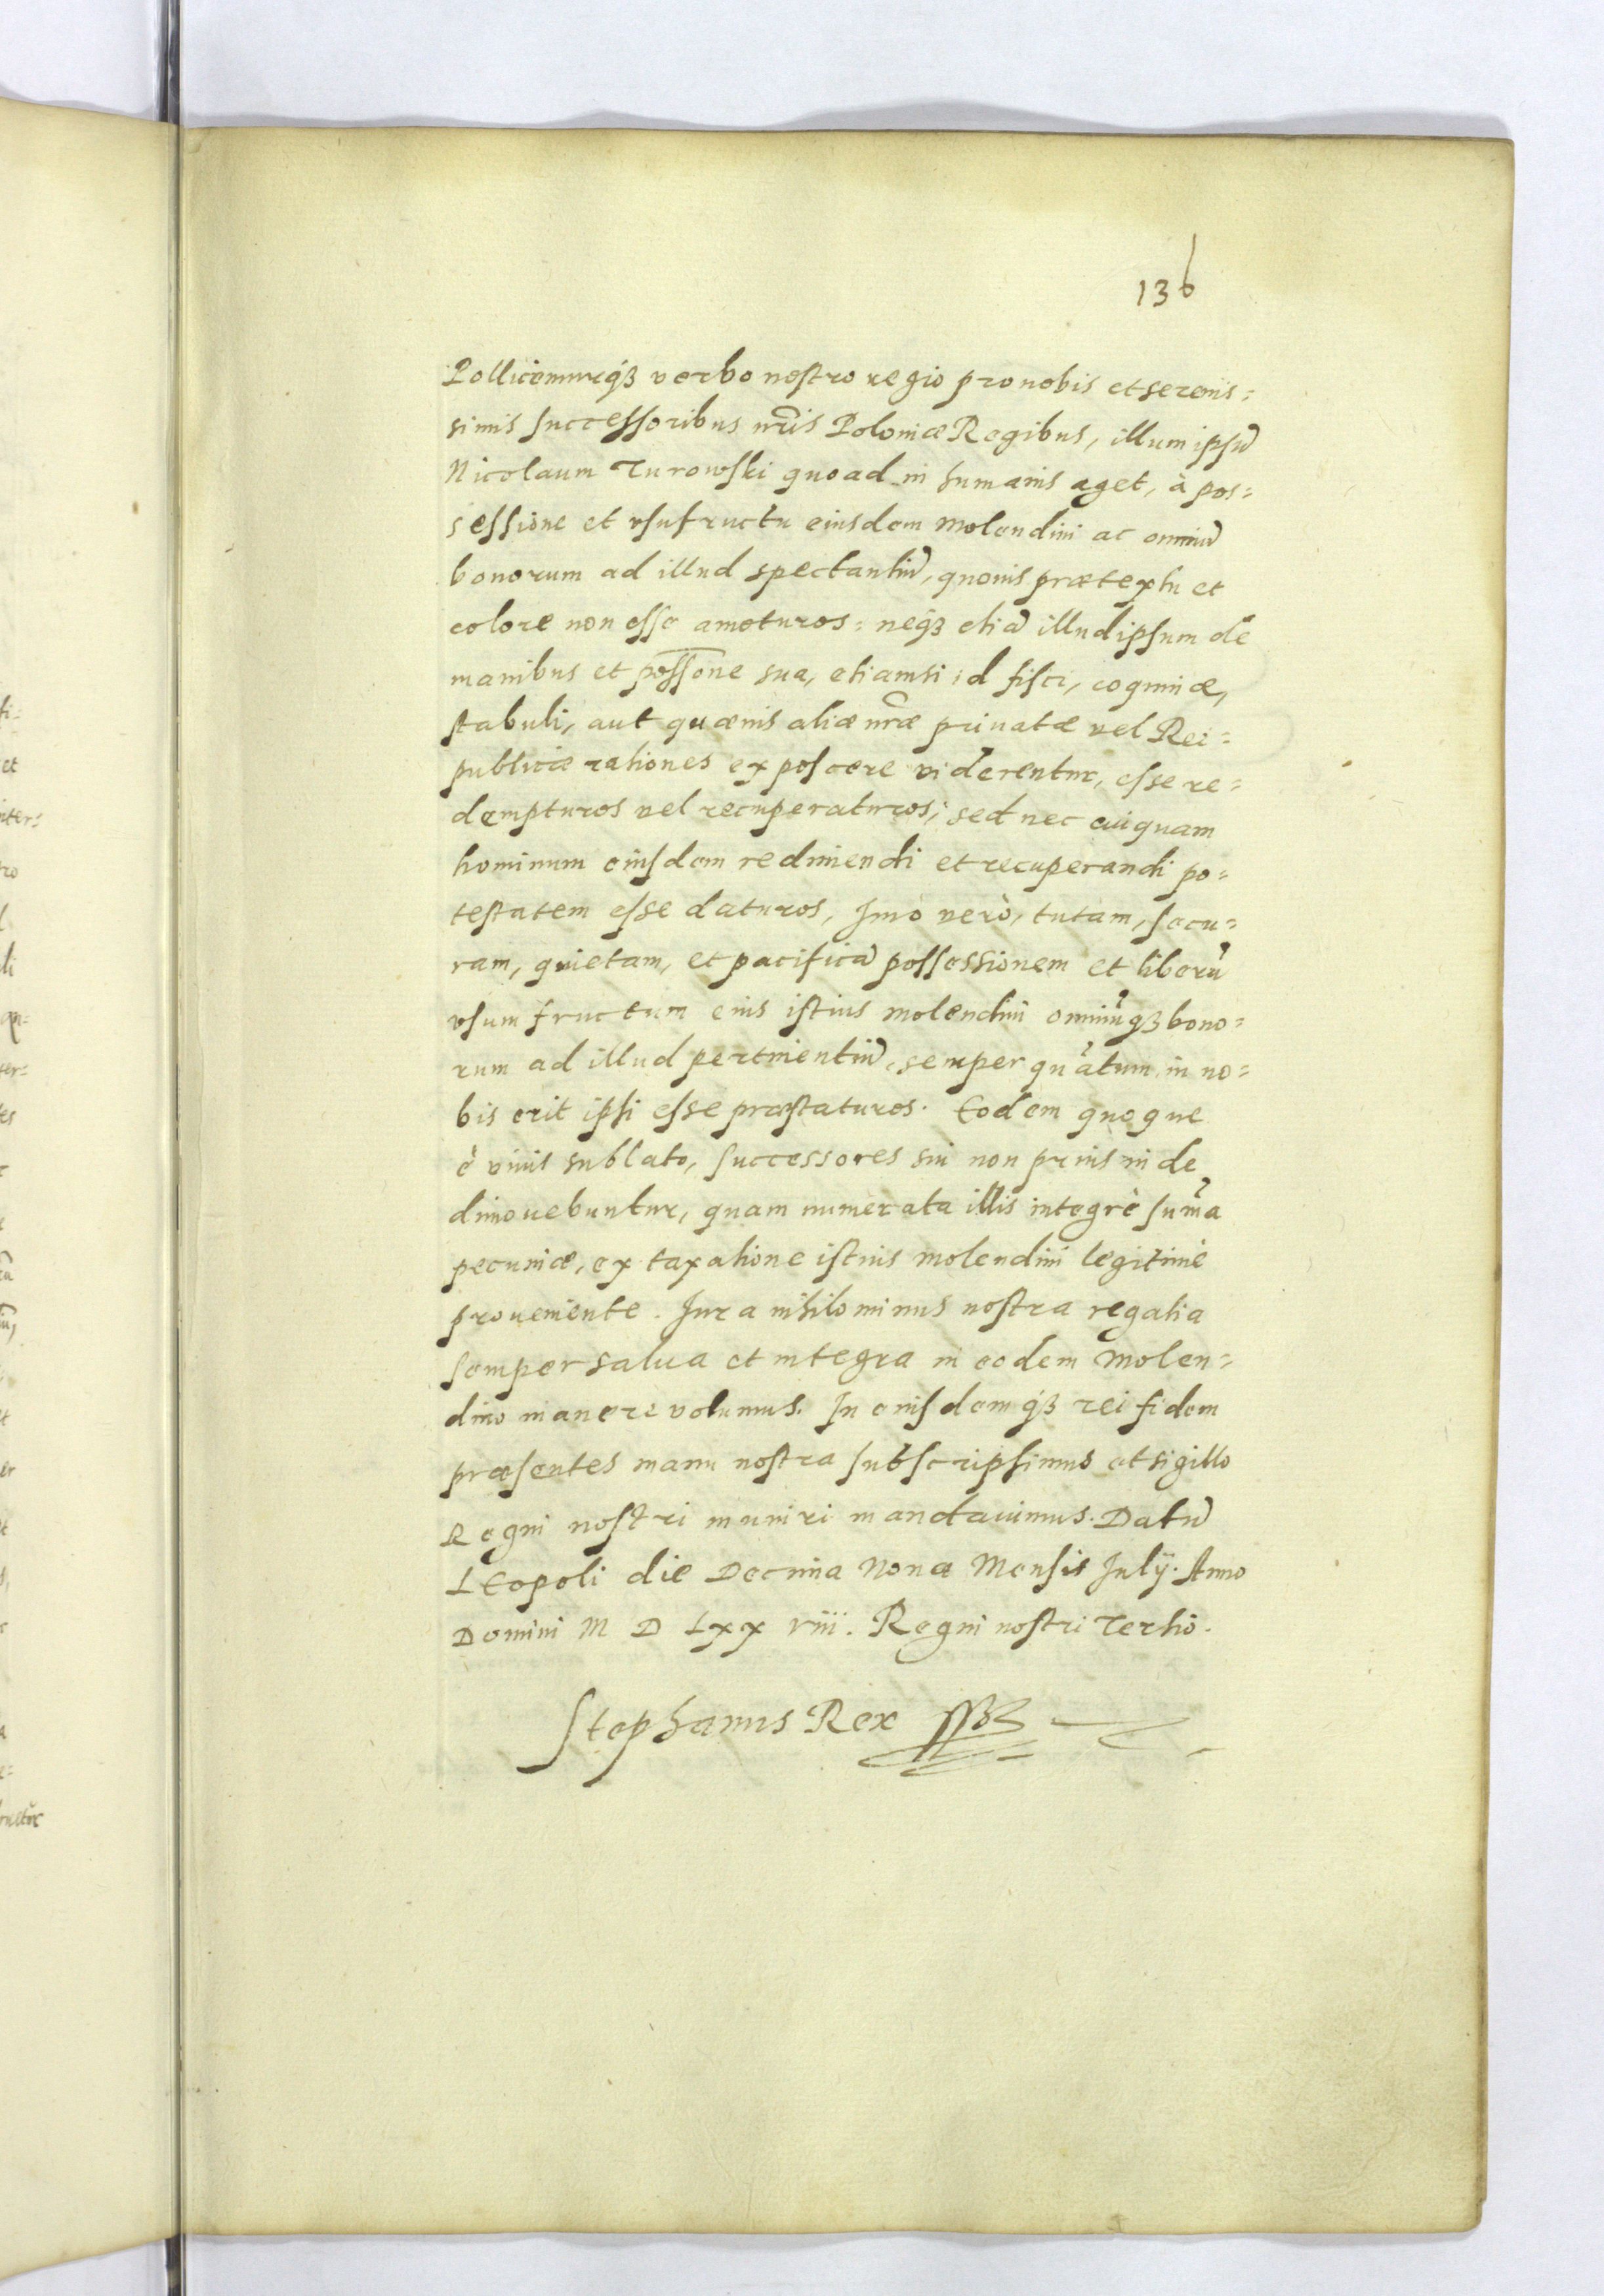 136
Pollicemurq3 verbo nostro regio pro nobis et serenis=
simis successoribus nr̃is Poloniæ Regibus, illum ipsũ
Nicolaum Turowski quoad in humanis aget, à pos=
sessione et vsufructu eiusdem molendini ac omniũ
bonorum ad illud spectantiũ, quouis prætextu et
colore non esse amoturos: neq3 etiã illud ipsum de
manibus et poss̃one sua, etiamsi id fisci, coquinæ,
stabuli, aut quæuis aliæ nr̃æ priuatæ vel Rei=
publicæ rationes exposcere viderentur, esse re=
dempturos vel recuperaturos; sed nec cuiquam
hominum eiusdem redimendi et recuperandi po=
testatem esse daturos, Imò verò, tutam, secu=
ram, quietam, et pacificã possessionem et liberũ
vsumfructum eius istius molendini omniũq3 bono=
rum ad illud pertinentiũ, semper quãtum in no=
bis erit ipsi esse præstaturos. Eodem quoque
è viuis sublato, successores sui non prius inde
dimouebuntur, quam numerata illis integrè sum̃a
pecuniæ, ex taxatione istius molendini legitimè
proueniente. Iura nihilominus nostra regalia
semper salua et integra in eodem molen=
dino manere volumus. In eiusdemq3 rei fidem
præsentes manu nostra subscripsimus et sigillo
Regni nostri muniri mandauimus. Datũ
LEopoli die Decima Nona Mensis Iulÿ. Anno
Domini M D Lxx viii. Regni nostri Tertio.
Stephanus Rex